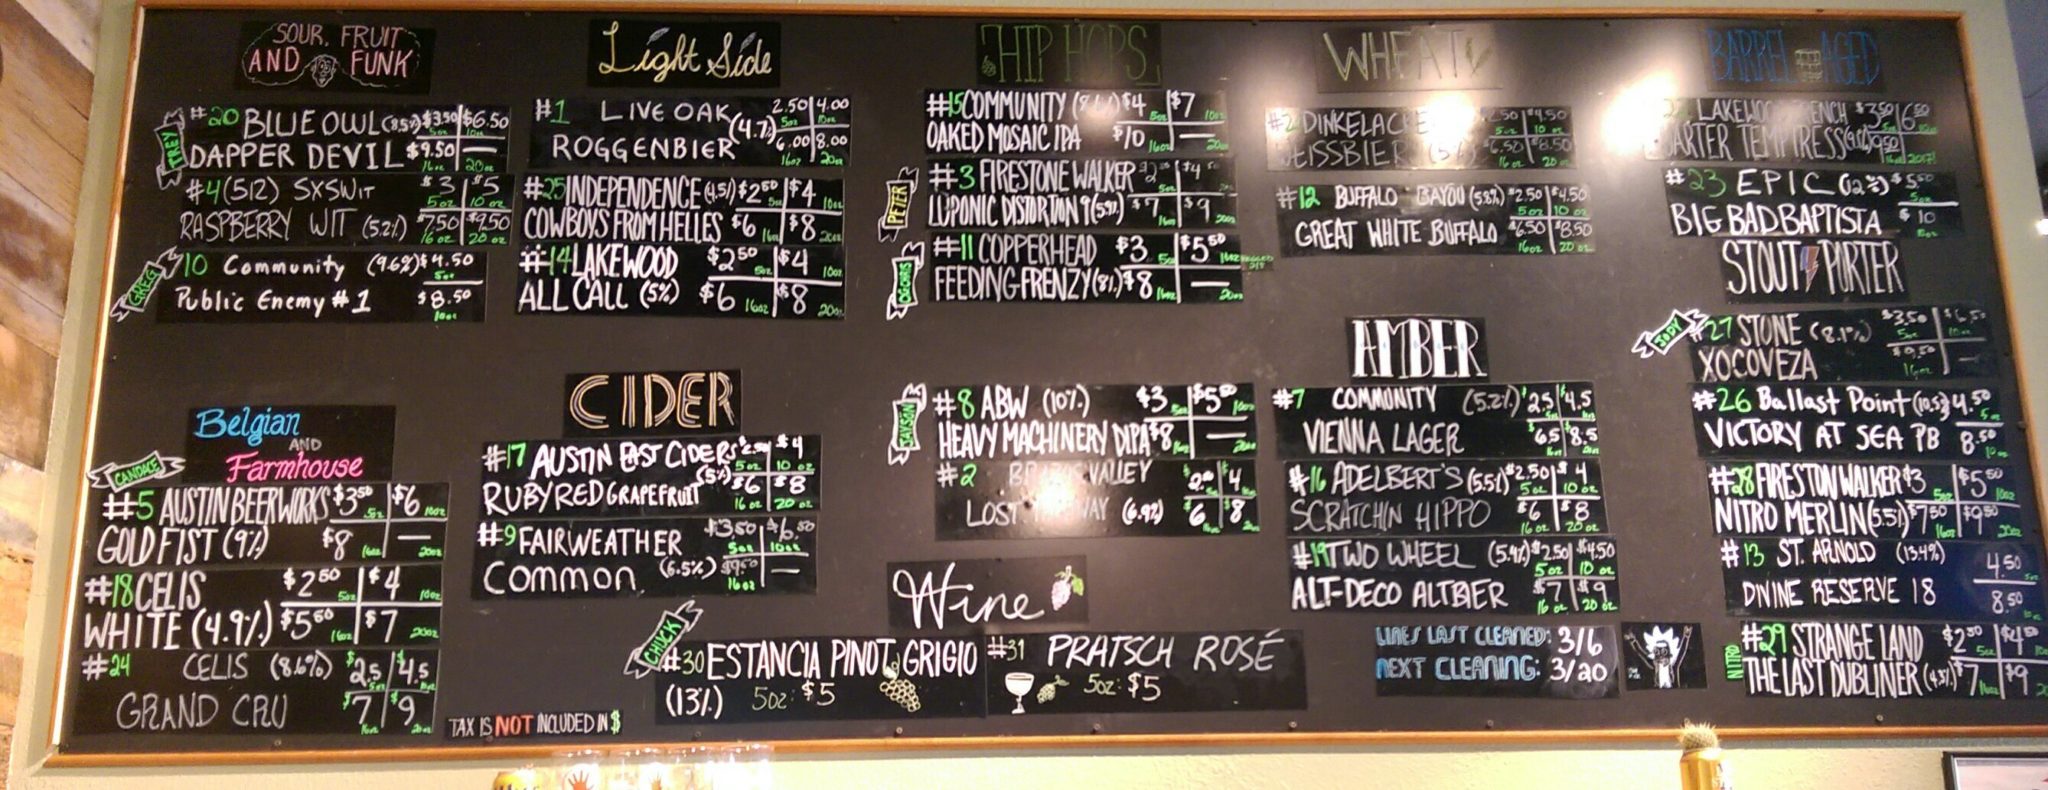 SOUR, FRUIT
AND FUNK
TREY
#20 BLUE OWL (8.5%) $3.50 $6.50
5oz 10oz
DAPPER DEVIL $9.50 —
16oz 20oz
#4 (512) SXSWIT $3 $5
5oz 10oz
RASPBERRY WIT (5.2%) $7.50 $9.50
16oz 20oz
GREG
10 Community (9.6%) $4.50
5oz
Public Enemy #1 $8.50
10oz
Belgian
AND
Farmhouse
CANDACE
#5 AUSTIN BEERWORKS $3.50 $6
5oz 10oz
GOLD FIST (9%) $8 —
16oz 20oz
#18 CELIS $2.50 $4
5oz 10oz
WHITE (4.9%) $5.50 $7
16oz 20oz
#24 CELIS (8.6%) $2.5 $4.5
GRAND CRU $7 $9
16oz 20oz
Light Side
#1 LIVE OAK (4.7%) 2.50 4.00
5oz 10oz
ROGGENBIER 6.00 8.00
16oz 20oz
#25 INDEPENDENCE (4.5%) $2.50 $4
5oz 10oz
COWBOYS FROM HELLES $6 $8
16oz 20oz
#14 LAKEWOOD $2.50 $4
5oz 10oz
ALL CALL (5%) $6 $8
16oz 20oz
CIDER
#17 AUSTIN EAST CIDERS $2.50 $4
(5%) 5oz 10oz
RUBY RED GRAPEFRUIT $6 $8
16oz 20oz
#9 FAIRWEATHER $3.50 $6.50
5oz 10oz
COMMON (6.5%) $9.50 —
16oz
TAX IS NOT INCLUDED IN $
HIP HOPS
#15 COMMUNITY $4 $7
5oz 10oz
OAKED MOSAIC IPA $10 —
16oz 20oz
PETER
#3 FIRESTONE WALKER $4
LUPONIC DISTORTION $7 $9
16oz 20oz
OGORRIS
#11 COPPERHEAD $3 $5.50
5oz 10oz
FEEDING FRENZY (8%) $8 —
16oz 20oz
SAYSON
#8 ABW (10%) $3 $5.50
5oz 10oz
HEAVY MACHINERY DIPA $8 —
16oz 20oz
#2 VALLEY $4
LOST (6.9%) $6 $8
16oz 20oz
Wine
CHUCK
#30 ESTANCIA PINOT GRIGIO
(13%) 5oz: $5
#31 PRATSCH ROSÉ
5oz: $5
WHEAT
DINKELACKE 2.50 $4.50
5oz 10oz
EISSBIER (5%) $6.50 $8.50
16oz 20oz
#12 BUFFALO BAYOU (5.8%) $2.50 $4.50
5oz 10oz
GREAT WHITE BUFFALO $6.50 $8.50
16oz 20oz
AMBER
#7 COMMUNITY (5.2%) $2.5 $4.5
VIENNA LAGER $6.5 $8.5
#16 ADELBERT'S (5.5%) $2.50 $4
5oz 10oz
SCRATCHIN HIPPO $6 $8
16oz 20oz
#19 TWO WHEEL (5.4%) $2.50 $4.50
5oz 10oz
ALT-DECO ALTBIER $7 $9
16oz 20oz
LINES LAST CLEANED: 3/6
NEXT CLEANING: 3/20
BARREL AGED
LAKEWOOD FRENCH $3.50 6.50
TEMPTRESS
#23 EPIC $5.50
5oz
BIG BAD BAPTISTA $10
STOUT PORTER
JODY
#27 STONE (8.1%) $3.50 $6.50
5oz 10oz
XOCOVEZA $9.50 —
16oz
#26 Ballast Point (10.5%) 4.50
5oz
VICTORY AT SEA PB 8.50
10oz
#28 FIRESTON WALKER $3 $5.50
5oz 10oz
NITRO MERLIN (5.5%) $7.50 $9.50
16oz 20oz
#13 ST. ARNOLD (13.4%) 4.50
DIVINE RESERVE 18 8.50
NITRO
#29 STRANGE LAND $2.50 $4.50
5oz
THE LAST DUBLINER $7 $9
16oz